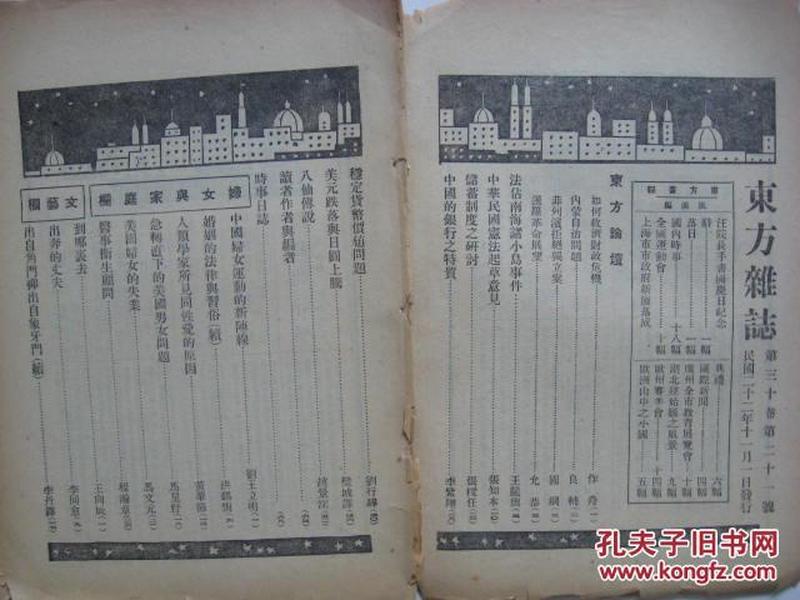 東方雜誌
第三十卷第二十一號
民國二十二年十一月一日發行
東方畫報
汪院長手書國慶日紀念
辭……一幅
落日……一幅
國內時事……十八幅
全國運動會……十幅
上海市市政府新廈落成
典禮……六幅
國際新聞……四幅
廣州全市教育展覽會……十幅
湖北……之風景……九幅
歐州賽美會……十四幅
歐洲山中之小國……五幅
東方論壇
如何救濟財政危機……作舟
內蒙自治問題……良輔
菲列濱拒絕獨立案……國綱
暹羅革命展望……允恭
法佔南海諸小島事件……王龍輿
中華民國憲法起草意見……張知本
儲蓄制度之研討……張樑任
中國的銀行之特質……李紫翔
穩定貨幣價值問題……劉行驥
美元跌落與日圓上騰
八仙傳說……趙景深
讀者作者與編者
時事日誌
婦女與家庭欄
中國婦女運動的新陣線……劉王立明
婚姻的法律與習俗(續)
人類學家所見同性愛的原因
急轉直下的美國男女問題
美國婦女的失業……馬文元
醫事衛生顧問……程瀚章
文藝欄
到哪裏去……王向辰
出奔的丈夫
出自角門禪出自象牙門(續)……李丹
孔夫子旧书网
www.kongfz.com